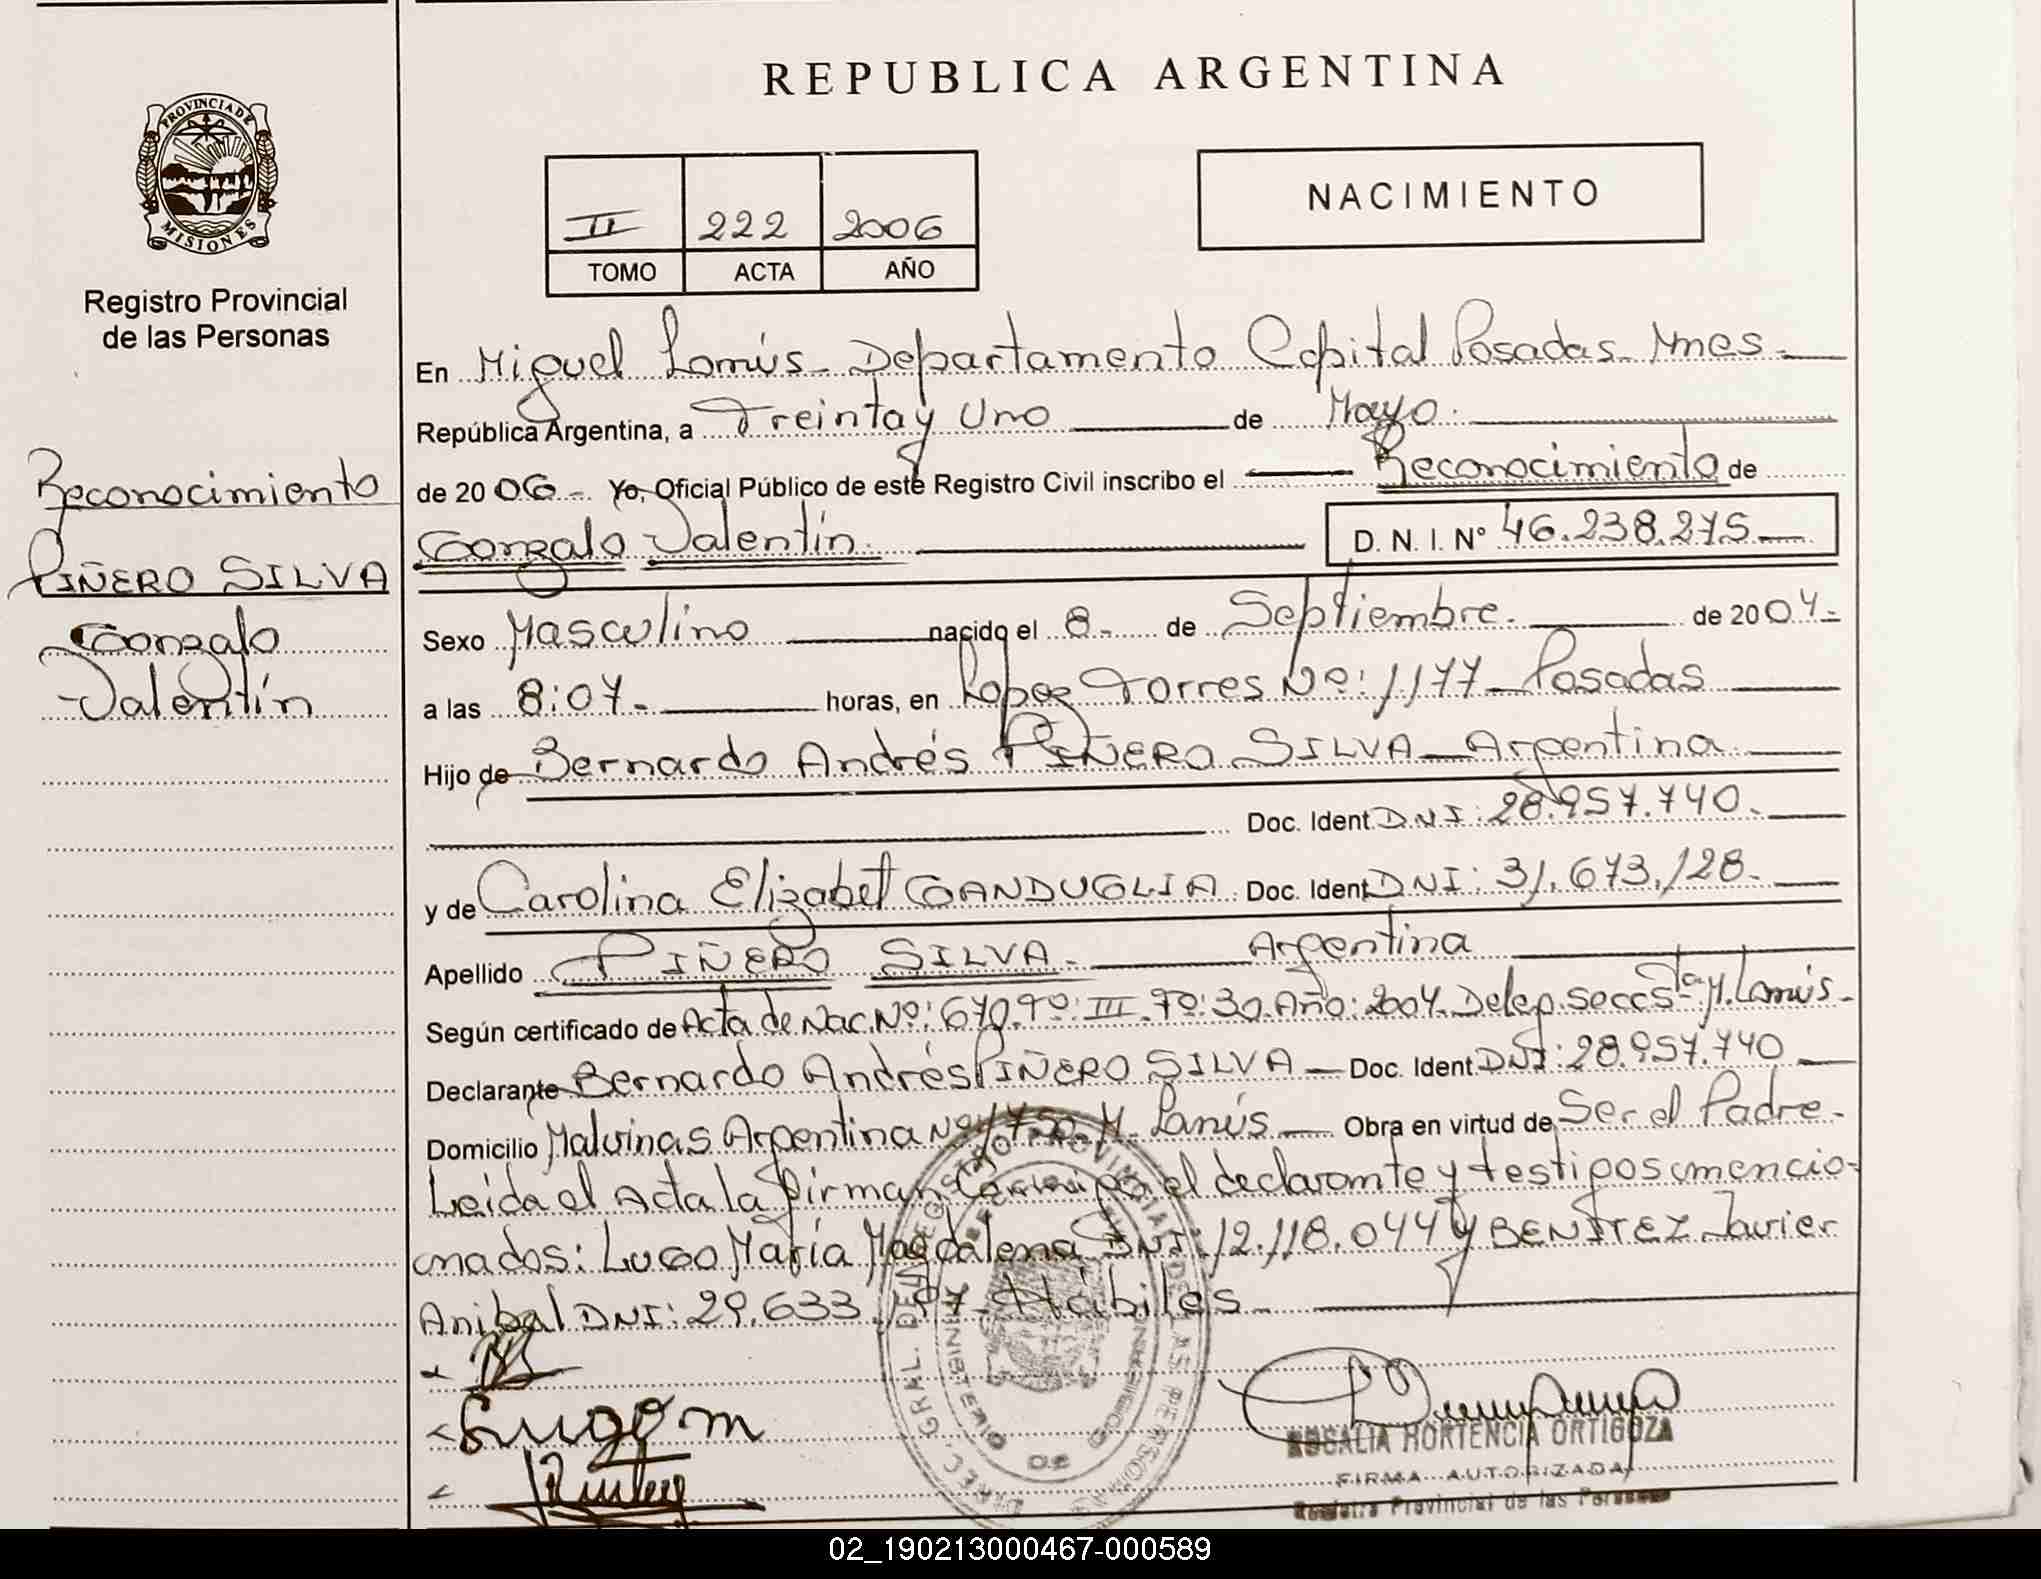 REPUBLICA ARGENTINA
PROVINCIA DE
MISIONES
Registro Provincial
de las Personas
II 222 2006
TOMO ACTA AÑO
NACIMIENTO
Reconocimiento
PIÑERO SILVA
Gonzalo
Valentín
En Miguel Lanús - Departamento Capital Posadas - Mnes -
República Argentina, a Treinta y Uno de Mayo.
de 2006 - Yo, Oficial Público de este Registro Civil inscribo el Reconocimiento de
Gonzalo Valentín. D. N. I. Nº 46.238.275
Sexo Masculino nacido el 8 - de Septiembre - de 2004 -
a las 8:07 - horas, en Lopez Torres Nº: 1177 - Posadas
Hijo de Bernardo Andrés PIÑERO SILVA - Argentina
Doc. Ident DNI: 28.957.740.
y de Carolina Elizabet GANDUGLIA Doc. Ident DNI: 31.673.128.
Apellido PIÑERO SILVA - Argentina
Según certificado de Acta de Nac. Nº: 670. Tº: III. Fº: 30. Año: 2004. Deleg. Sta M. Lanús -
Declarante Bernardo Andrés PIÑERO SILVA - Doc. Ident DNI: 28.957.740
Domicilio Malvinas Argentina Nº 1750. M. Lanús - Obra en virtud de Ser el Padre.
Leída el Acta la firman Conmigo el declarante y testigos mencio-
nados: LUGO María Magdalena DNI: 12.118.044 y BENITEZ Javier
Anibal DNI: 29.633.197 - Hábiles -
Lugo m
ROSALIA HORTENCIA ORTIGOZA
FIRMA AUTORIZADA
Registro Provincial de las Personas
DIREC. GRAL. DEL REGISTRO PROVINCIAL DE LAS PERSONAS
MINISTERIO DE GOBIERNO
02_190213000467-000589